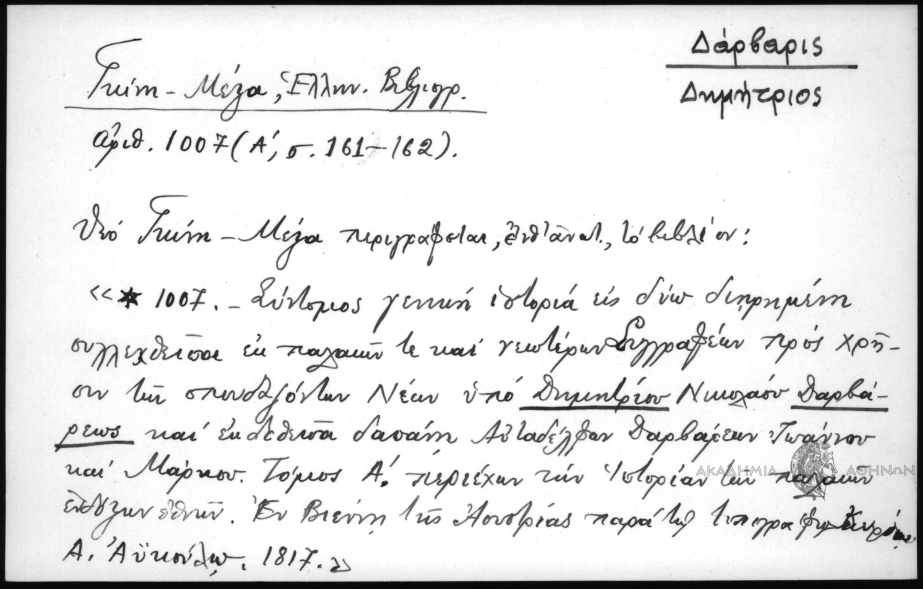 Δάρβαρις
Δημήτριος
Γκίνη - Μέξα, Ἑλλην. Βιβλιογρ.
ἀριθ. 1007 (Α΄, σ. 161-162).
Ὑπό Γκίνη - Μέξα περιγράφεται, , τό βιβλίον:
«* 1007. - Σύντομος γενική ἱστορία εἰς δύω διῃρημένη
συλλεχθεῖσα ἐκ παλαιῶν τε καί νεωτέρων Συγγραφέων πρός χρῆ-
σιν τῶν σπουδαζόντων Νέων ὑπό Δημητρίου Νικολάου Δαρβά-
ρεως καί ἐκδοθεῖσα δαπάνῃ Αὐταδέλφων Δαρβάρεων Ἰωάννου
καί Μάρκου. Τόμος Α΄. περιέχων τήν Ἱστορίαν τῶν παλαιῶν
ἐθνῶν. Ἐν Βιέννῃ τῆς Αουστρίας παρά τῷ τυπογράφῳ
Α. Ἀϋκούλῳ. 1817.»
ΑΚΑΔΗΜΙΑ ΑΘΗΝΩΝ